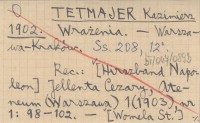 TETMAJER Kazimierz
1902. Wrażenia. – Warsza-
wa-Kraków. Ss. 208, 12°.
Rec.: [Hirszband Napo-
leon] Jellenta Cezary, Ate-
neum (Warszawa) 1(1903), nr
1: 98-102. – [Womela St.]